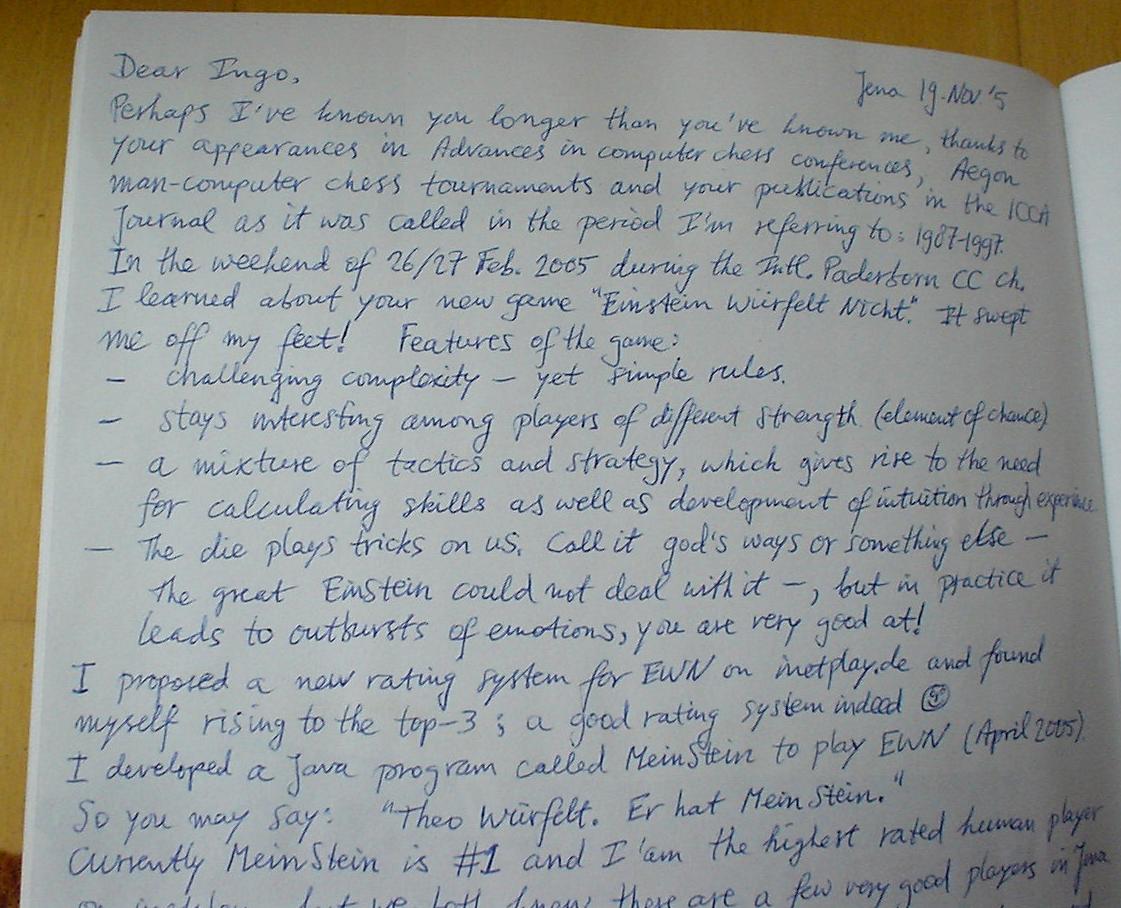 Dear Ingo,
Jena 19.Nov '5
Perhaps I've known you longer than you've known me, thanks to
your appearances in Advances in computer chess conferences, Aegon
man-computer chess tournaments and your publications in the ICCA
Journal as it was called in the period I'm referring to: 1987-1997.
In the weekend of 26/27 Feb. 2005 during the Intl. Paderborn CC ch.
I learned about your new game "Einstein Würfelt Nicht". It swept
me off my feet! Features of the game:
- challenging complexity - yet simple rules.
- stays interesting among players of different strength (element of chance)
- a mixture of tactics and strategy, which gives rise to the need
for calculating skills as well as development of intuition through experience
- The die plays tricks on us. Call it god's ways or something else -
The great Einstein could not deal with it -, but in practice it
leads to outbursts of emotions, you are very good at!
I proposed a new rating system for EWN on inetplay.de and found
myself rising to the top-3; a good rating system indeed ☺
I developed a Java program called MeinStein to play EWN (April 2005).
So you may say: "Theo Würfelt. Er hat Mein Stein."
Currently MeinStein is #1 and I'am the highest rated human player
but we both know there are a few very good players in Jena